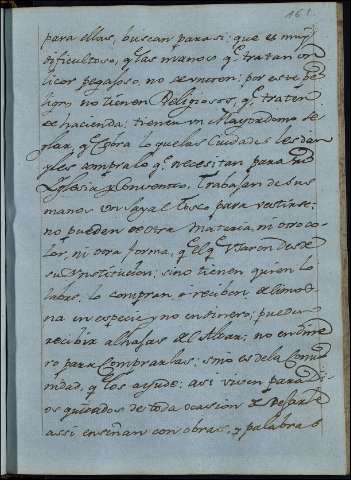 161.
para ellas, buscan para si: que es muy
dificultoso, q las manos q tratan
licor pegajoso, no se unten: por este pe
ligro no tienen Religiosos, q traten
de hacienda: tienen un Mayordomo se
glar, q cobra lo que las Ciudades les dan
y les compra lo q necesitan para su
Iglesia y Convento. Trabajan de sus
manos un sayal tosco para vestirse:
no pueden de otra materia, ni otro co
lor, ni otra forma, q el q usaron desde
su Ynstitucion: sino tienen quien lo
labre, lo compran, o reciben de limos
na en especie y no en dinero: pueden
recibir alhajas del Altar; no en dine
ro para comprarlas: sino es de la Comu
nidad, q los ayude: asi viven para Di
os quitados de toda ocasion de
assi enseñan con obras, y palabras